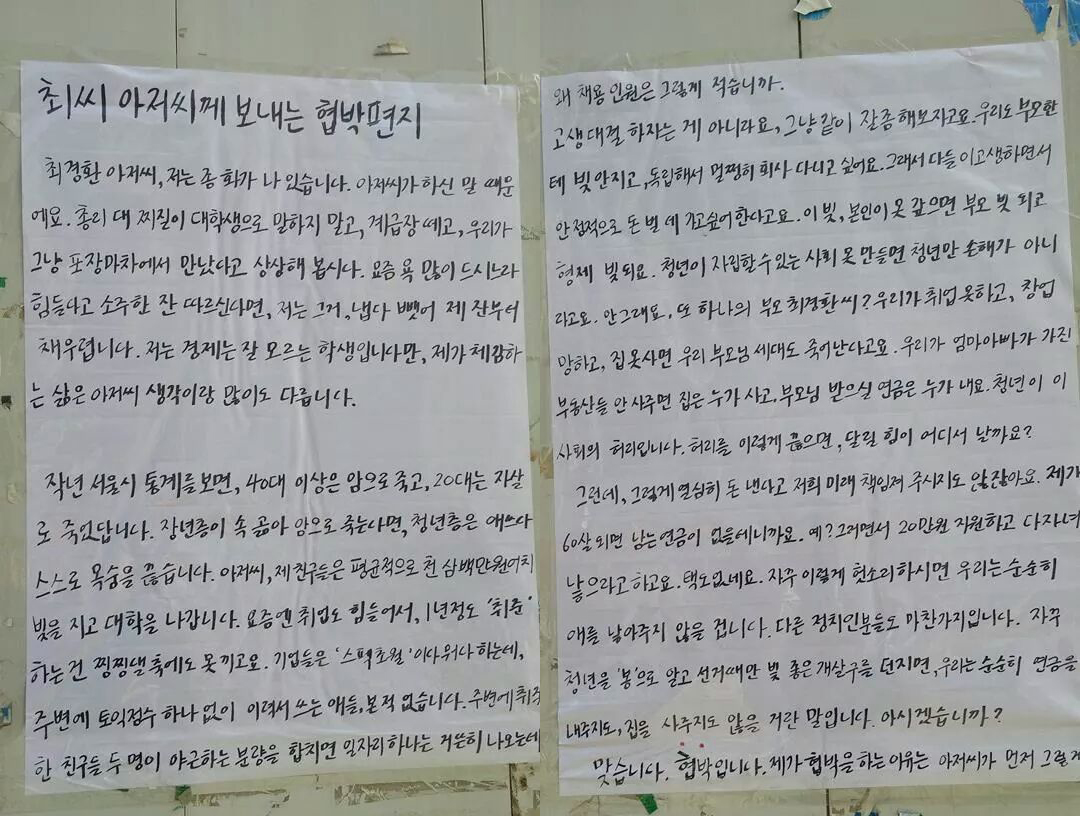 최씨 아저씨께 보내는 협박편지
최경환 아저씨, 저는 좀 화가 나 있습니다. 아저씨가 하신 말 때문
에요. 총리 대 찌질이 대학생으로 말하지 말고, 계급장 떼고, 우리가
그냥 포장마차에서 만났다고 상상해 봅시다. 요즘 욕 많이 드시느라
힘들다고 소주한 잔 따르신다면, 저는 그거, 냅다 뺏어 제 잔부터
채우렵니다. 저는 경제는 잘 모르는 학생입니다만, 제가 체감하
는 삶은 아저씨 생각이랑 많이도 다릅니다.
작년 서울시 통계를 보면, 40대 이상은 암으로 죽고, 20대는 자살
로 죽었답니다. 장년층이 속 곪아 암으로 죽는다면, 청년층은 애쓰다
스스로 목숨을 끊습니다. 아저씨, 제 친구들은 평균적으로 천 삼백만원어치
빚을 지고 대학을 나갑니다. 요즘엔 취업도 힘들어서, 1년정도 '취준'
하는건 찡찡댈 축에도 못 끼고요. 기업들은 '스펙초월'이다 뭐다 하는데,
주변에 토익점수 하나 없이 이력서 쓰는 애들, 본적 없습니다. 주변에 취직
한 친구들 두 명이 야근하는 분량을 합치면 일자리 하나는 거뜬히 나오는데
왜 채용 인원은 그렇게 적습니까.
고생 대결 하자는 게 아니라요, 그냥 같이 잘좀 해보자고요. 우리도 부모한
테 빚 안지고, 독립해서 멀쩡히 회사 다니고 싶어요. 그래서 다들 이 고생하면서
안정적으로 돈 벌 데 가고 싶어 한다고요. 이 빚, 본인이 못 갚으면 부모 빚 되고
형제 빚 되요. 청년이 자립할 수 있는 사회 못 만들면 청년만 손해가 아니
라고요. 안 그래요, 또 하나의 부모 최경환 씨? 우리가 취업 못하고, 창업
망하고, 집 못사면 우리 부모님 세대도 죽어난다고요. 우리가 엄마아빠가 가진
부동산들 안 사주면 집은 누가 사고, 부모님 받으실 연금은 누가 내요. 청년이 이
사회의 허리입니다. 허리를 이렇게 끊으면, 달릴 힘이 어디서 날까요?
그런데, 그렇게 열심히 돈 낸다고 저희 미래 책임져 주시지도 않잖아요. 제가
60살 되면 남는 연금이 없을테니까요. 예? 그러면서 20만원 지원하고 다자녀
낳으라고 하고요. 택도 없네요. 자꾸 이렇게 헛소리 하시면 우리는 순순히
애를 낳아주지 않을 겁니다. 다른 정치인분들도 마찬가지입니다. 자꾸
청년을 '봉'으로 알고 선거때만 빛 좋은 개살구를 던지면, 우리는 순순히 연금을
내주지도, 집을 사주지도 않을 거란 말입니다. 아시겠습니까?
맞습니다. 협박입니다. 제가 협박을 하는 이유는 아저씨가 먼저 그렇게